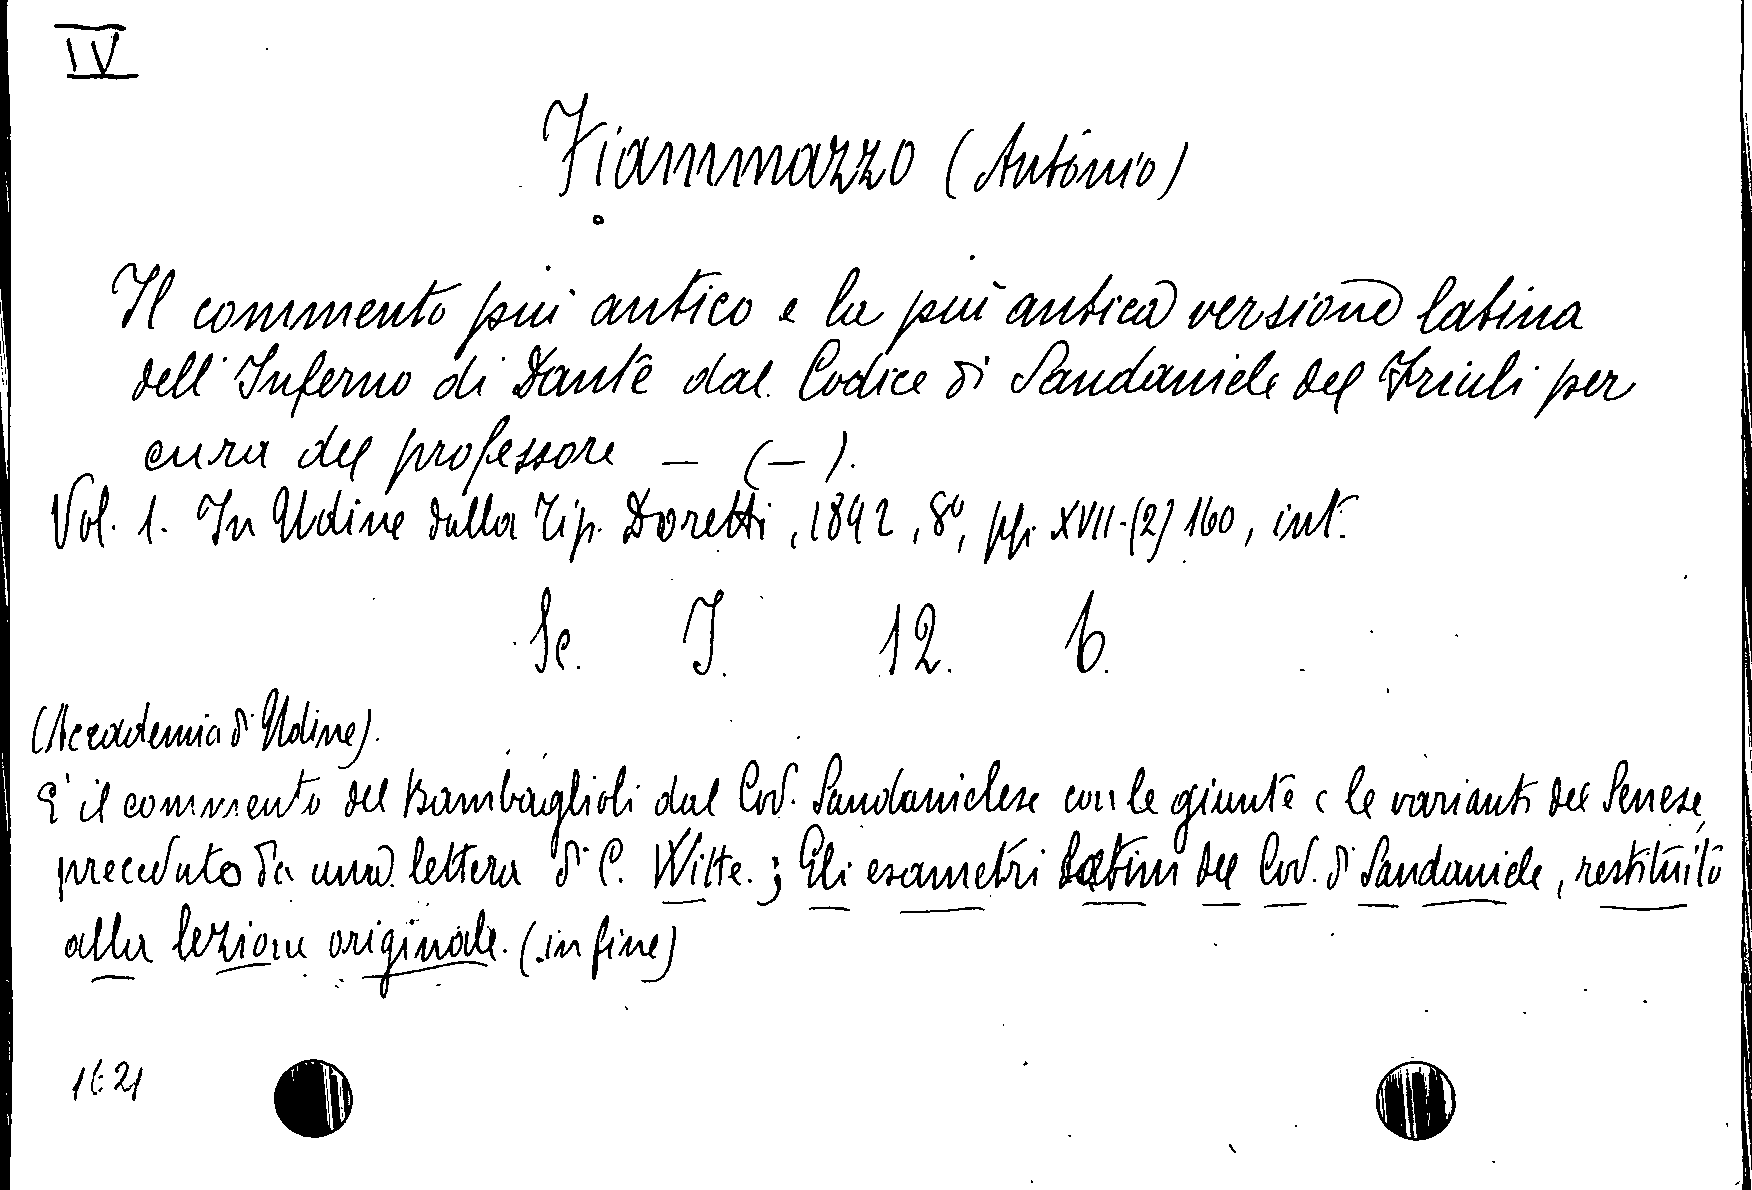 IV
Fiammazzo (Antonio)
Il commento più antico e la più antica versione latina
dell'Inferno di Dante dal Codice di Sandaniele del Friuli per
cura del professore — (—).
Vol. 1. In Udine dalla Tip. Doretti, 1892, 8º, pp. XVII-(2) 160, int.
Sc. I. 12. 6.
(Accademia di Udine).
E' il commento del Bambaglioli dal Cod. Sandanielese con le giunte e le varianti del Senese,
preceduto da una lettera di C. Witte.; Gli esametri latini del Cod. di Sandaniele, restituito
alla lezione originale. (in fine)
1621